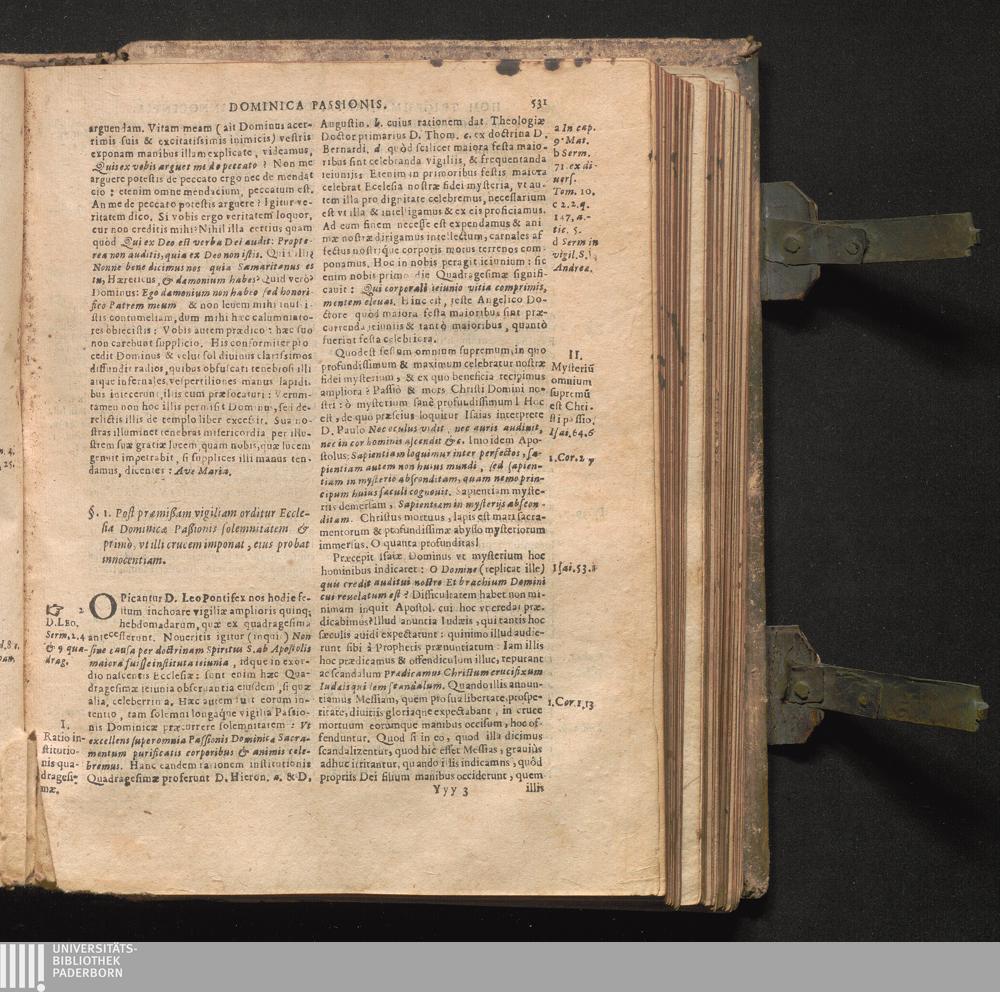 DOMINICA PASSIONIS.
531
arguendam. Vitam meam (ait Dominus acer-
rimis suis & excitatissimis inimicis) vestris
exponam manibus illam explicate, videamus,
Quis ex vobis arguet me de peccato? Non me
arguere potestis de peccato ergo nec de mendat
cio: etenim omne mendacium, peccatum est.
An me de peccato potestis arguere? Igitur ve-
ritatem dico. Si vobis ergo veritatem loquor,
cur non creditis mihi? Nihil illa certius quam
quòd Qui ex Deo est verba Dei audit: Propte-
rea non auditis, quia ex Deo non istis.
Nonne bene dicimus nos quia Samaritanus es
tu, Hæreticus, & damonium habes? Quid verò?
Dominus: Ego damonium non habeo sed honori-
fico Patrem meum & non levem mihi
stis contumeliam, dum mihi hæc calumniato-
res obiecistis: Vobis autem prædico: hæc suo
non carebunt supplicio. His conformiter pro
cedit Dominus & velut sol divinus clarissimos
diffundit radios, quibus obfuscati tenebrosi illi
atque infernales vespertiliones manus lapidi-
bus iniecerunt, illis eum præfocaturi: Verum-
tamen non hoc illis permisit Dominus, sed de-
relictis illis de templo liber excessit. Sua no-
stras illuminet tenebras misericordia per illu-
strem suæ gratiæ lucem, quam nobis, quæ lucem
genuit impetrabit, si supplices illi manus ten-
damus, dicentes: Ave Maria.
§. 1. Post præmissam vigiliam orditur Eccle-
sia Dominicæ Passionis solemnitatem &
primò, vt illi crucem imponat, eius probat
innocentiam.
OPicantur D. Leo Pontifex nos hodie fe-
stum inchoare vigiliæ amplioris quinq;
hebdomadarum, quæ ex quadragesima
antecesserunt. Noueritis igitur (inqui) Non
sine causa per doctrinam Spiritus S. ab Apostolis
maiora fuisse instituta ieiunia, idque in exor-
dio nascentis Ecclesiæ: sunt enim hæc Qua-
dragesimæ ieiunia obseruantia eiusdem, si quæ
alia, celeberrima. Hæc autem fuit eorum in-
tentio, tam solemni longaque vigilia Passio-
nis Dominicæ præcurrere solemnitatem: Vt
excellens super omnia Passionis Dominica Sacra-
mentum purificatis corporibus & animis cele-
bremus. Hanc eandem rationem institutionis
Quadragesimæ proferunt D. Hieron. a. & D.
2
D. LEO.
Serm. 2. 4
& 9 qua-
drag.
I.
Ratio in-
stitutio-
nis qua-
dragesi-
mæ.
Augustin. b. cuius rationem dat Theologiæ
Doctor primarius D. Thom. c. ex doctrina D.
Bernardi. d quòd scilicet maiora festa maio-
ribus sint celebranda vigiliis, & frequentanda
ieiuniis Etenim in primoribus festis maiora
celebrat Ecclesia nostræ fidei mysteria, vt au-
tem illa pro dignitate celebremus, necessarium
est vt illa & intelligamus & ex eis proficiamus.
Ad eum finem necesse est expendamus & ani
mæ nostræ dirigamus intellectum, carnales af
fectus nostrique corporis motus terrenos com-
ponamus. Hoc in nobis peragit ieiunium: sic
enim nobis primo die Quadragesimæ signifi-
cauit: Qui corporali ieiunio vitia comprimis,
mentem eleuas. Hinc est, teste Angelico Do-
ctore quòd maiora festa maioribus sint præ-
currenda ieiuniis & tantò maioribus, quantò
fuerint festa celebriora.
Quodest festum omnium supremum, in quo
profundissimum & maximum celebratur nostræ
fidei mysterium, & ex quo beneficia recipimus
ampliora? Passio & mors Christi Domini no-
stri: ò mysterium sanè profundissimum! Hoc
est, de quo præscius loquitur Isaias interprete
D. Paulo Nec oculus vidit, nec auris audiuit,
nec in cor hominis ascendit &c. Imo idem Apo-
stolus: Sapientiam loquimur inter perfectos, sa-
pientiam autem non huius mundi, sed sapien-
tiam in mysterio absconditam, quam nemo prin-
cipum huius saculi cognouit. Sapientiam myste-
riis demersam, Sapientiam in mysterijs abscon-
ditam. Christus mortuus, lapis est mari sacra-
mentorum & profundissimæ abysso mysteriorum
immersus. O quanta profunditas!
Præcepit Isaiæ Dominus vt mysterium hoc
hominibus indicaret: O Domine (replicat ille)
quis credit auditui nostro Et brachium Domini
cui reuelatum est? Difficultatem habet non mi-
nimam inquit Apostol. cui hoc vt credat præ-
dicabimus? Illud anuntia Iudæis, qui tantis hoc
sæculis auidi expectarunt: quinimo illud audie-
runt sibi à Prophetis prænuntiatum: Iam illis
hoc prædicamus & offendiculum illuc, reputant
ac scandalum Pradicamus Christum crucifixum
Iudais quidem scandalum. Quando illis annun-
tiamus Messiam, quem pro sua libertate, prospe
ritate, diuitiis gloriaque expectabant, in cruce
mortuum eorumque manibus occisum, hoc of-
fenduntur. Quod si in eo, quod illa dicimus
scandalizentur, quòd hic esset Messias, grauiùs
adhuc irritantur, quando illis indicamns, quòd
propriis Dei filium manibus occiderunt, quem
Yyy 3
illis
a In cap.
9. Mat.
b Serm.
71. ex di-
uers.
Tom. 10.
c 2. 2. q.
147. a.-
tic. 5.
d Serm in
vigil. S.
Andrea.
II.
Mysteriũ
omnium
supremũ
est Chri-
sti passio.
Isai. 64. 6
1. Cor. 2 7
Isai. 53. 1
1. Cor. 1, 13
UNIVERSITÄTS-
BIBLIOTHEK
PADERBORN